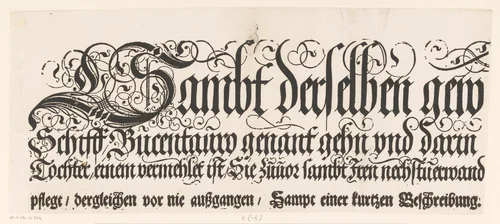 Sambt derselben gew
Schiff Bucentauro genant gehn vnd darin
Tochter einem vermehlet ist, Sie zuuor sambt Iren nechstuerwand
pflegt / dergleichen vor nie außgangen / Sampt einer kurtzen Beschreibung.